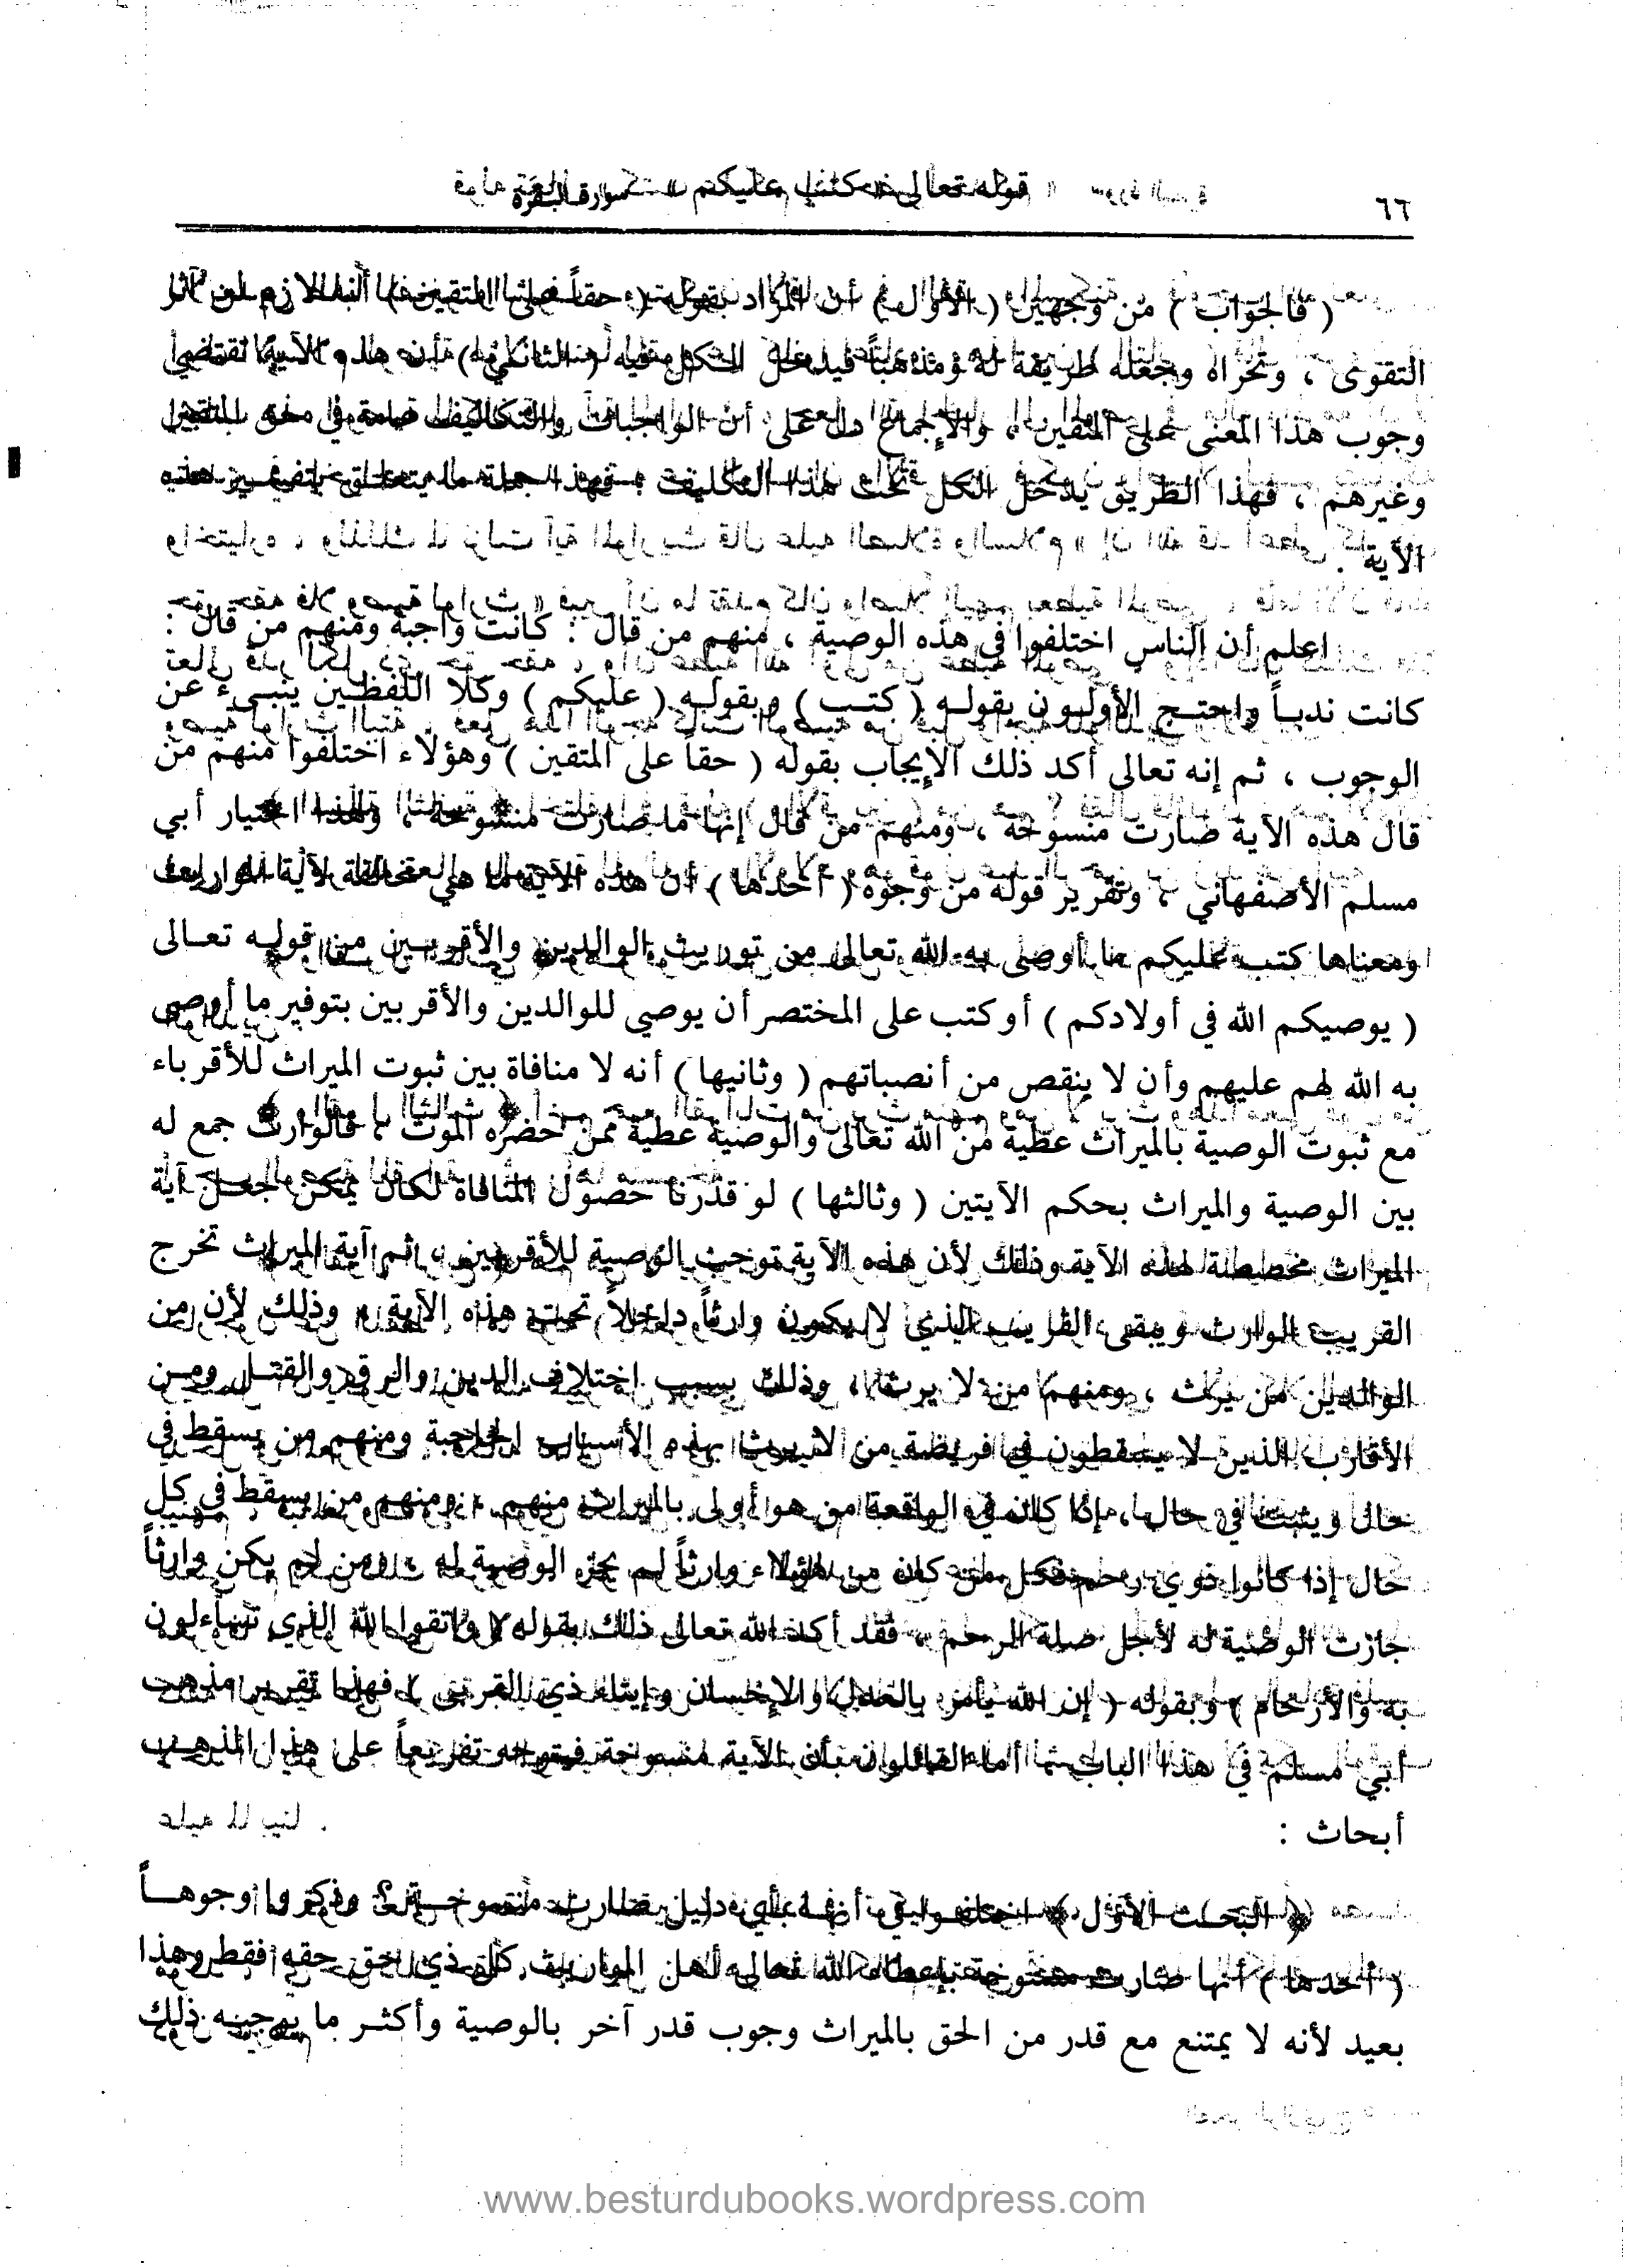 ٦٦ قوله تعالى « كتب عليكم » سورة البقرة
( فالجواب ) من وجهين ( الأول ) أن المراد بقوله ( حقاً على المتقين ) أنه لازم لمن آثر
التقوى ، وتحراه وجعله طريقة له ومذهباً فيدخل الكل فيه ( الثاني ) أن هذه الآية تقتضي
وجوب هذا المعنى على المتقين ، والإجماع دل على أن الواجبات والتكاليف عامة في حق المتقين
وغيرهم ، فهذا الطريق يدخل الكل تحت هذا التكليف . فهذا جملة ما يتعلق بتفسير هذه
الآية .
اعلم أن الناس اختلفوا في هذه الوصية ، منهم من قال : كانت واجبة ومنهم من قال :
كانت ندباً واحتج الأولون بقوله ( كتب ) وبقوله ( عليكم ) وكلا اللفظين ينبىء عن
الوجوب ، ثم إنه تعالى أكد ذلك الإيجاب بقوله ( حقاً على المتقين ) وهؤلاء اختلفوا منهم من
قال هذه الآية صارت منسوخة ، ومنهم من قال إنها ما صارت منسوخة ، وهذا اختيار أبي
مسلم الأصفهاني ، وتقرير قوله من وجوه ( أحدها ) أن هذه الآية ما هي مخالفة لآية المواريث
ومعناها كتب عليكم ما أوصى به الله تعالى من توريث الوالدين والأقربين من قوله تعالى
( يوصيكم الله في أولادكم ) أو كتب على المختصر أن يوصي للوالدين والأقربين بتوفير ما أوصى
به الله لهم عليهم وأن لا ينقص من أنصباتهم ( وثانيها ) أنه لا منافاة بين ثبوت الميراث للأقرباء
مع ثبوت الوصية بالميراث عطية من الله تعالى والوصية عطية ممن حضره الموت ، فالوارث جمع له
بين الوصية والميراث بحكم الآيتين ( وثالثها ) لو قدرنا حصول المنافاة لكان يمكن جعل آية
الميراث مخصصة لهذه الآية وذلك لأن هذه الآية توجب الوصية للأقربين ، ثم آية الميراث تخرج
القريب الوارث ويبقى القريب الذي لا يكون وارثاً داخلاً تحت هذه الآية ، وذلك لأن من
الوالدين من يرث ، ومنهم من لا يرث ، وذلك بسبب اختلاف الدين والرق والقتل ومن
الأقارب الذين لا يسقطون في فريضة من لا يرث بهذه الأسباب الحاجبة ومنهم من يسقط في
حال ويثبت في حال ، إذا كان في الواقعة من هو أولى بالميراث منهم ، ومنهم من يسقط في كل
حال إذا كانوا ذوي رحم فكل من كان من هؤلاء وارثاً لم يجز الوصية له ، ومن لم يكن وارثاً
جازت الوصية له لأجل صلة الرحم ، فقد أكد الله تعالى ذلك بقوله ( واتقوا الله الذي تساءلون
به والأرحام ) وبقوله ( إن الله يأمر بالعدل والإحسان وإيتاء ذي القربى ) فهذا تقرير مذهب
أبي مسلم في هذا الباب ، أما القائلون بأن الآية منسوخة فيتوجه تفريعاً على هذا المذهب
أبحاث :
﴿ البحث الأول ﴾ اختلفوا في أنها بأي دليل صارت منسوخة ؟ وذكروا وجوهاً
( أحدها ) أنها صارت منسوخة بإعطاء الله تعالى أهل المواريث كل ذي حق حقه فقط وهذا
بعيد لأنه لا يمتنع مع قدر من الحق بالميراث وجوب قدر آخر بالوصية وأكثر ما يوجبه ذلك
www.besturdubooks.wordpress.com